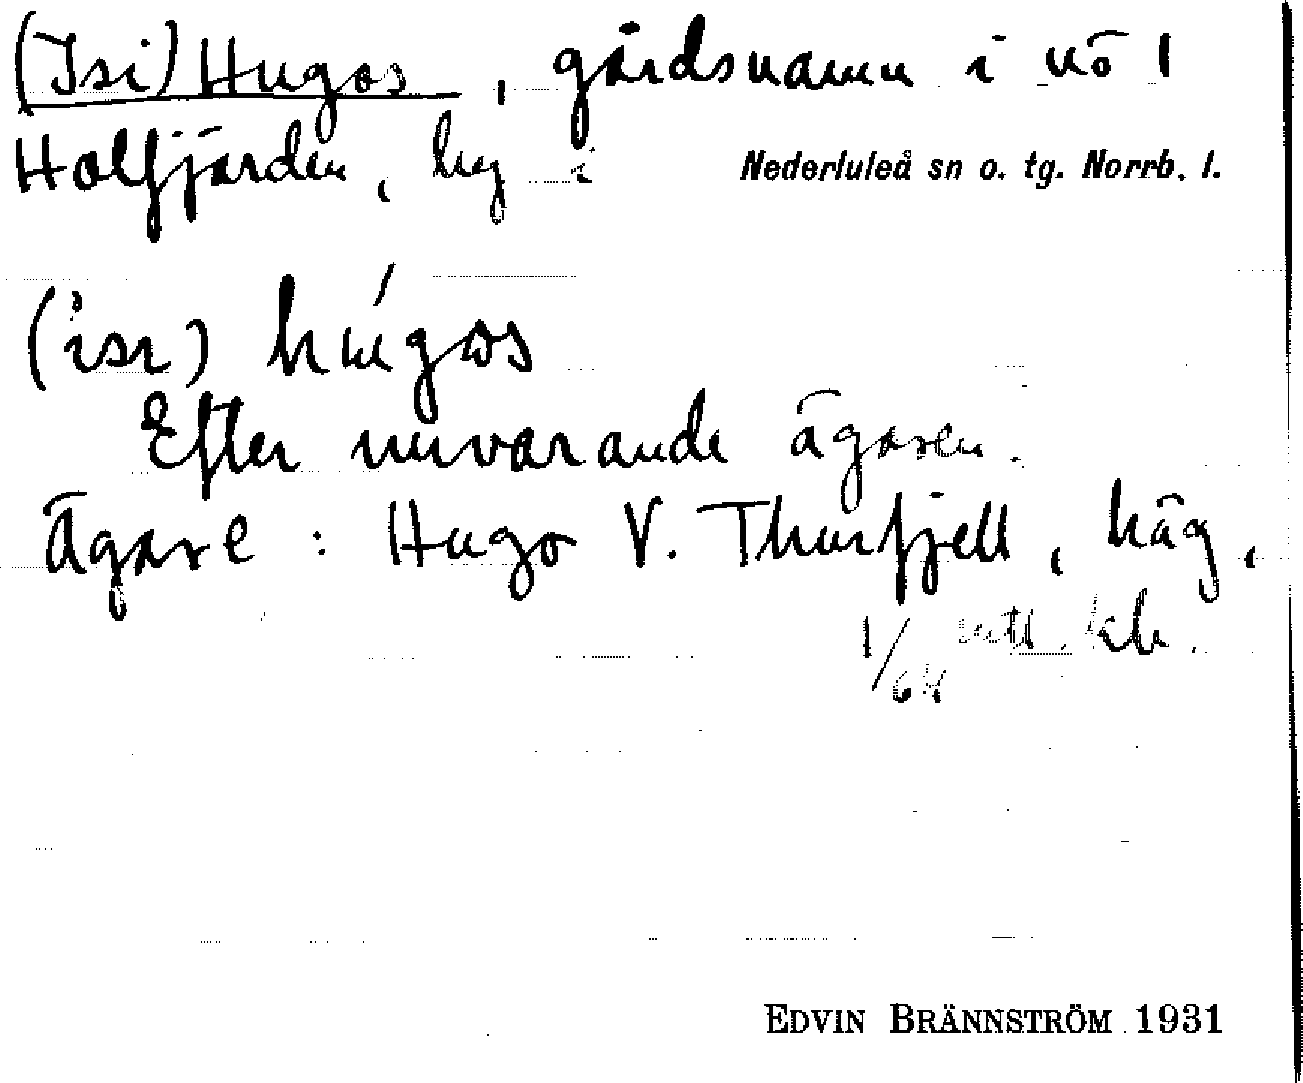 (Isi) Hugos, gårdsnamn i nö 1
Holfjärden, by i Nederluleå sn o. tg. Norrb. l.
(isi) húgos
Efter nuvarande ägaren.
Ägare: Hugo V. Thurfjell, häg,
1/64 mtl. kb.
EDVIN BRÄNNSTRÖM 1931